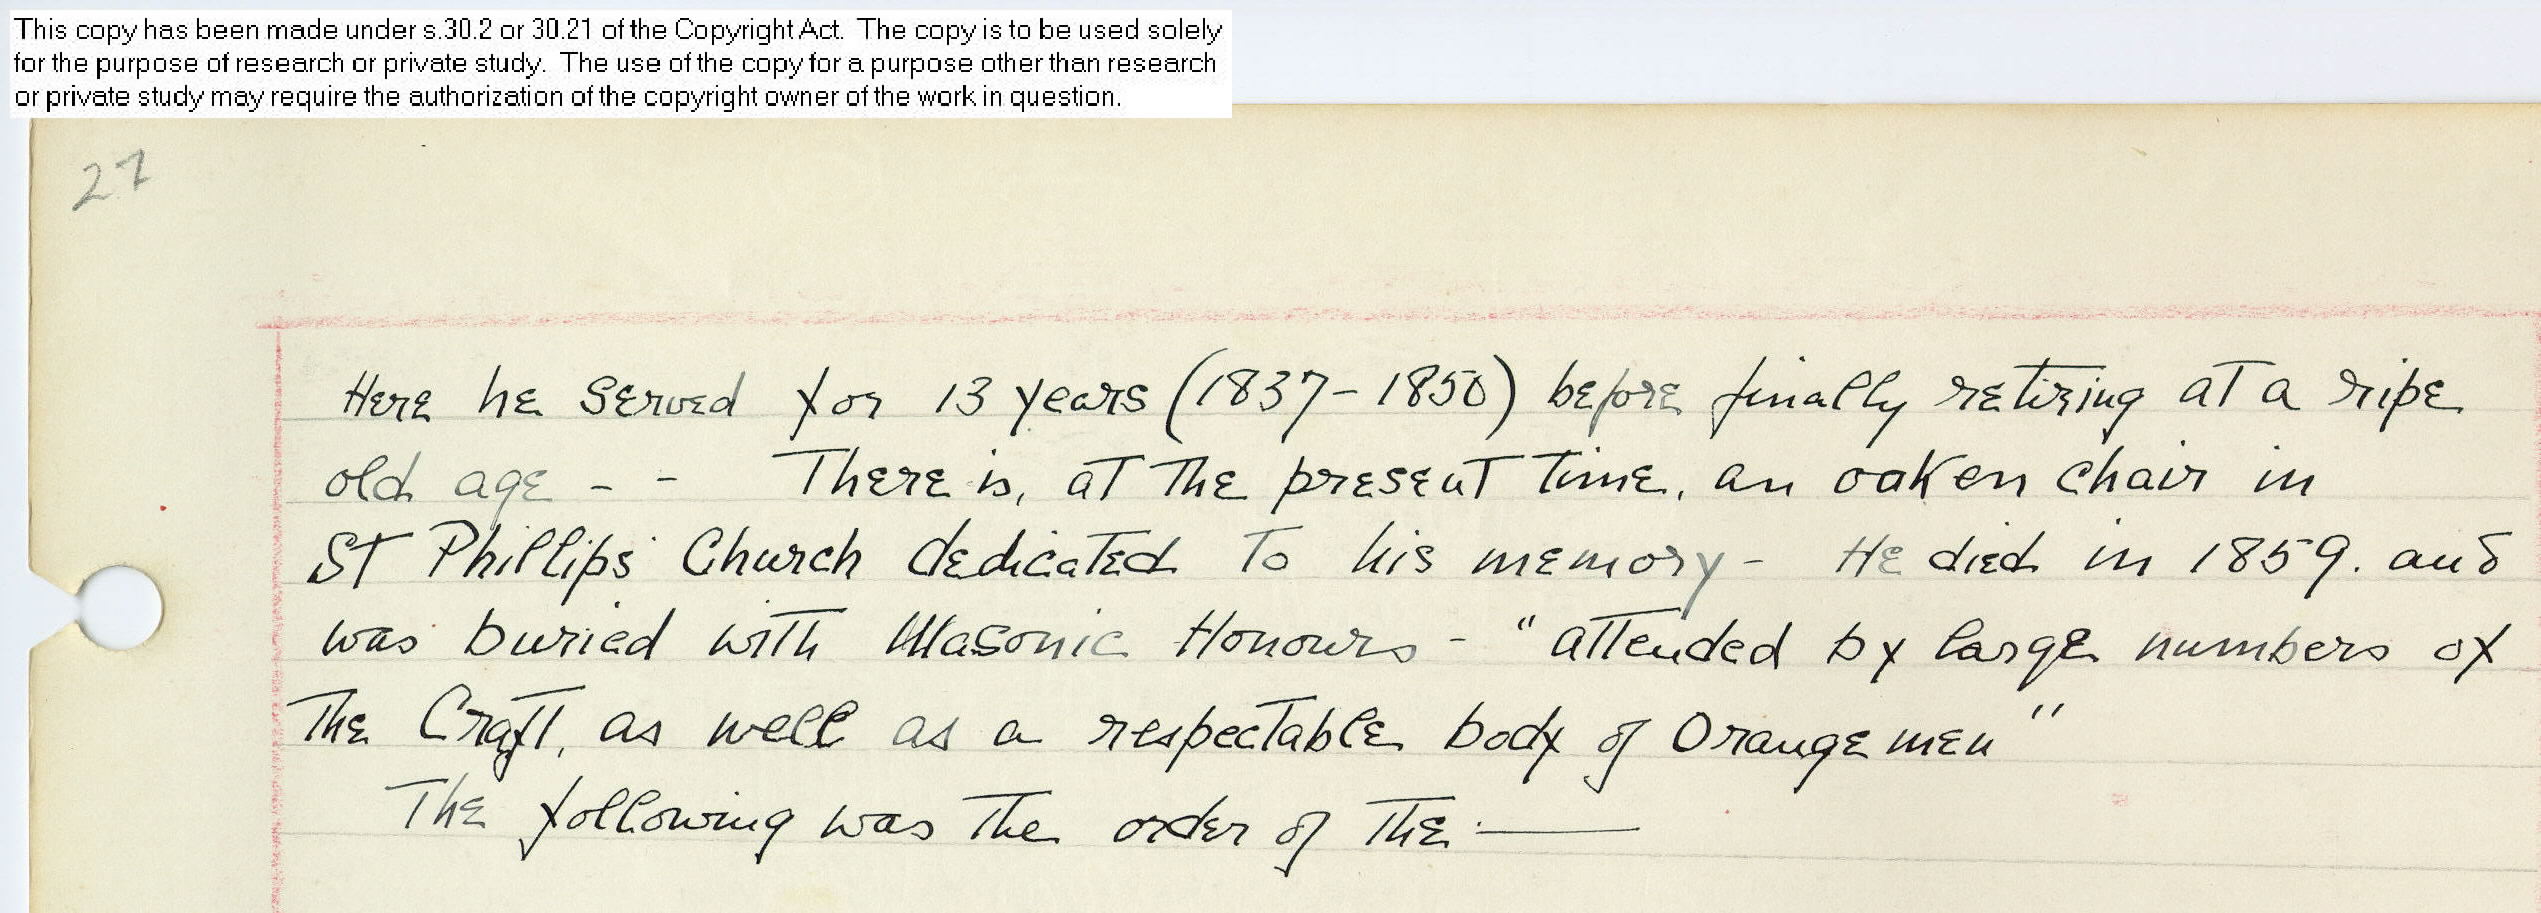 This copy has been made under s.30.2 or 30.21 of the Copyright Act. The copy is to be used solely
for the purpose of research or private study. The use of the copy for a purpose other than research
or private study may require the authorization of the copyright owner of the work in question.
27
Here he served for 13 years (1837-1850) before finally retiring at a ripe
old age - - There is, at the present time, an oaken chair in
St Phillips' Church dedicated to his memory - He died in 1859. and
was buried with Masonic Honours - "attended by large numbers of
the Craft, as well as a respectable body of Orangemen"
The following was the order of the ——